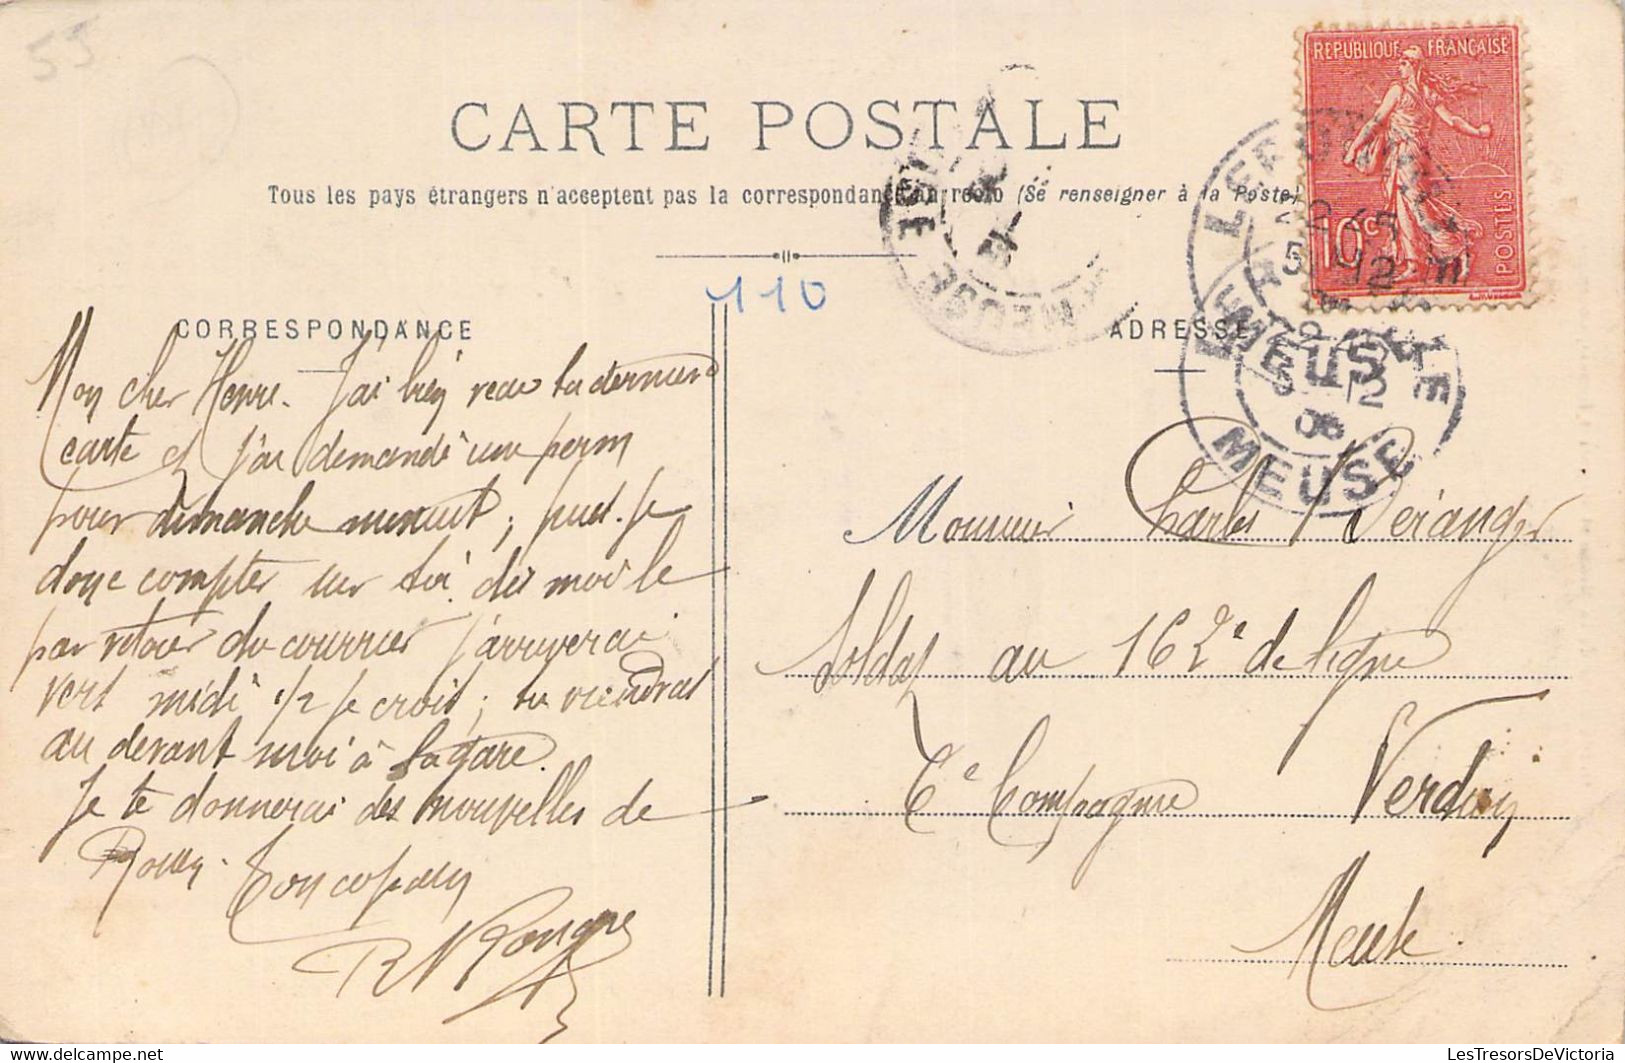 55
CARTE POSTALE
Tous les pays étrangers n'acceptent pas la correspondance au recto (Se renseigner à la Poste)
REPUBLIQUE FRANÇAISE
10 c
POSTES
LEROUVILLE
MEUSE
5 -12
06
MEUSE
MEUSE
110
CORRESPONDANCE
ADRESSE
Mon cher Henri. J'ai bien recu ta derniere
carte et j'ai demandé une perm
pour dimanche minuit, puis-je
donc compter sur toi. dis moi le
par retour du courrier j'arriverai
vers midi 1/2 je crois; tu viendras
au devant moi à la gare.
Je te donnerai des nouvelles de
Rouen. Ton copain
Monsieur Charles Béranger
Soldat au 162e de ligne
6e Compagnie Verdun
Meuse.
Visitez LesTresorsDeVictoria sur delcampe.net
LesTresorsDeVictoria